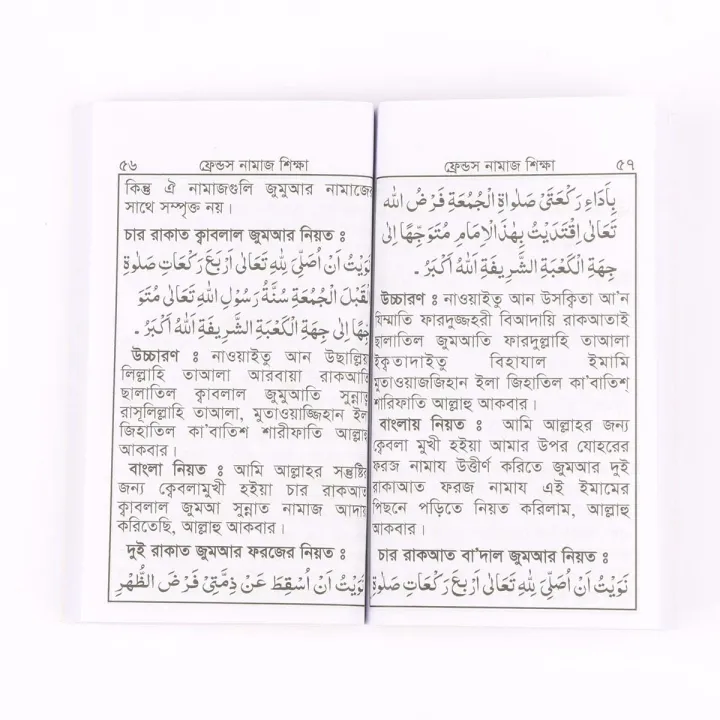 ৫৬ ফ্রেন্ডস নামাজ শিক্ষা
কিন্তু ঐ নামাজগুলি জুমুআর নামাজের
সাথে সম্পৃক্ত নয়।
চার রাকাত ক্বাবলাল জুমআর নিয়ত ঃ
نَوَيْتُ اَنْ اُصَلِّىَ لِلّٰهِ تَعَالٰى اَرْبَعَ رَكْعَاتِ صَلٰوةِ
الْقَبْلَ الْجُمُعَةِ سُنَّةُ رَسُوْلِ اللهِ تَعَالٰى مُتَوَ
جِّهًا اِلٰى جِهَةِ الْكَعْبَةِ الشَّرِيْفَةِ اَللهُ اَكْبَرُ ۔
উচ্চারণ ঃ নাওয়াইতু আন উছাল্লিয়
লিল্লাহি তাআলা আরবায়া রাকআতি
ছালাতিল ক্বাবলাল জুমুআতি সুন্নাতু
রাসূলিল্লাহি তাআলা, মুতাওয়াজ্জিহান ইলা
জিহাতিল কা'বাতিশ শারীফাতি আল্লাহু
আকবার।
বাংলা নিয়ত ঃ আমি আল্লাহর সন্তুষ্টির
জন্য ক্বেবলামুখী হইয়া চার রাকআত
ক্বাবলাল জুমআ সুন্নাত নামাজ আদায়
করিতেছি, আল্লাহু আকবার।
দুই রাকাত জুমআর ফরজের নিয়ত ঃ
نَوَيْتُ اَنْ اُسْقِطَ عَنْ ذِمَّتِىْ فَرْضَ الظُّهْرِ
ফ্রেন্ডস নামাজ শিক্ষা ৫৭
بِاَدَاءِ رَكْعَتَىْ صَلٰوةِ الْجُمُعَةِ فَرْضُ اللهِ
تَعَالٰى اِقْتَدَيْتُ بِهٰذَا الْاِمَامِ مُتَوَجِّهًا اِلٰى
جِهَةِ الْكَعْبَةِ الشَّرِيْفَةِ اَللهُ اَكْبَرُ ۔
উচ্চারণ ঃ নাওয়াইতু আন উসক্বিতা আ'ন
যিম্মাতি ফারদুজ্জহরী বিআদায়ি রাকআতাই
ছালাতিল জুমআতি ফারদুল্লাহি তাআলা
ইক্বতাদাইতু বিহাযাল ইমামি
মুতাওয়াজজিহান ইলা জিহাতিল কা'বাতিশ্
শারিফাতি আল্লাহু আকবার।
বাংলায় নিয়ত ঃ আমি আল্লাহর জন্য
ক্বেবলা মুখী হইয়া আমার উপর যোহরের
ফরজ নামায উত্তীর্ণ করিতে জুমআর দুই
রাকাআত ফরজ নামায এই ইমামের
পিছনে পড়িতে নিয়ত করিলাম, আল্লাহু
আকবার।
চার রাকআত বা'দাল জুমআর নিয়ত ঃ
نَوَيْتُ اَنْ اُصَلِّىَ لِلّٰهِ تَعَالٰى اَرْبَعَ رَكْعَاتِ صَلٰوةِ